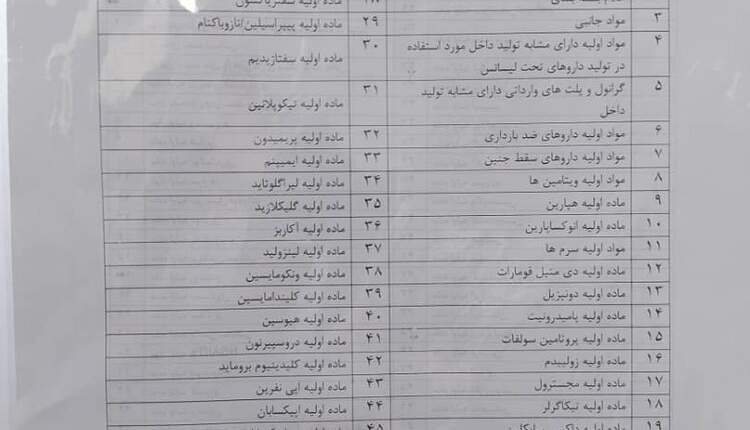 ۳ مواد جانبی
۴ مواد اولیه دارای مشابه تولید داخل مورد استفاده
در تولید داروهای تحت لیسانس
۵ گرانول و پلت های وارداتی دارای مشابه تولید
داخل
۶ مواد اولیه داروهای ضد بارداری
۷ مواد اولیه داروهای سقط جنین
۸ مواد اولیه ویتامین ها
۹ ماده اولیه هپارین
۱۰ ماده اولیه انوکساپارین
۱۱ مواد اولیه سرم ها
۱۲ ماده اولیه دی متیل فومارات
۱۳ ماده اولیه دونپزیل
۱۴ ماده اولیه پامیدرونیت
۱۵ ماده اولیه پروتامین سولفات
۱۶ ماده اولیه زولپیدم
۱۷ ماده اولیه مجسترول
۱۸ ماده اولیه تیکاگرلر
۱۹ ماده اولیه
ماده اولیه سفتریاکسون
۲۹ ماده اولیه پیپراسیلین/تازوباکتام
۳۰ ماده اولیه سفتازیدیم
۳۱ ماده اولیه تیکوپلانین
۳۲ ماده اولیه پریمیدون
۳۳ ماده اولیه ایمیپنم
۳۴ ماده اولیه لیراگلوتاید
۳۵ ماده اولیه گلیکلازید
۳۶ ماده اولیه آکاربز
۳۷ ماده اولیه لینزولید
۳۸ ماده اولیه ونکومایسین
۳۹ ماده اولیه کلیندامایسین
۴۰ ماده اولیه هیوسین
۴۱ ماده اولیه دروسپیرنون
۴۲ ماده اولیه کلیدینیوم بروماید
۴۳ ماده اولیه اپی نفرین
۴۴ ماده اولیه اپیکسابان
۴۵